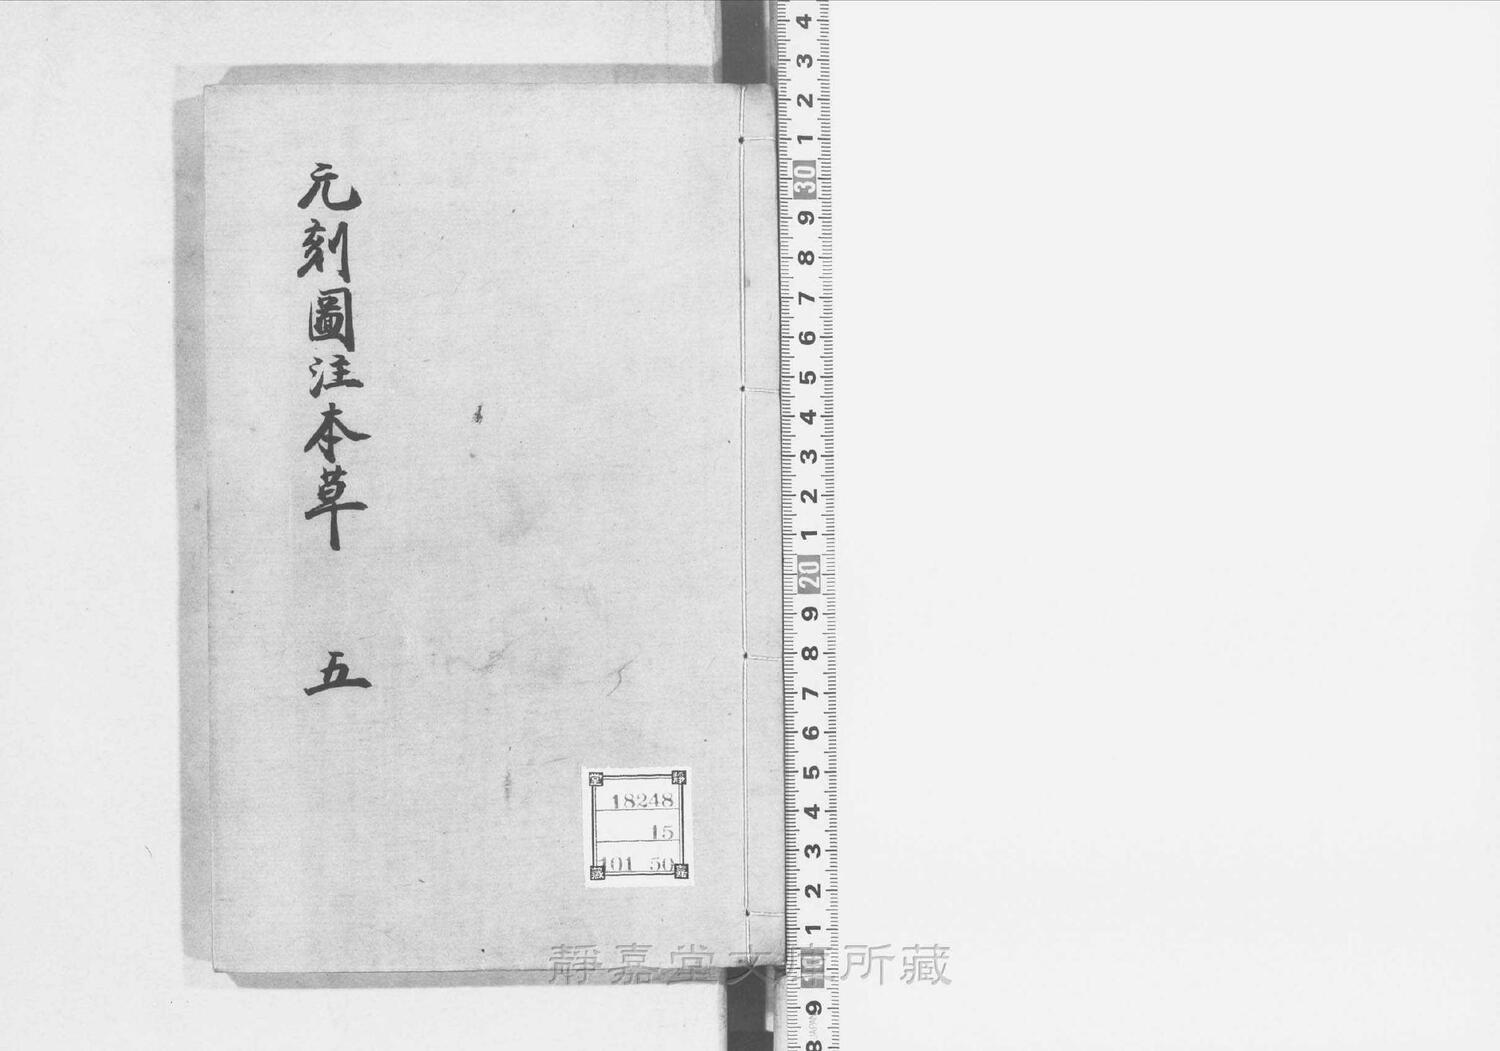 元刻圖注本草 五
18248
15
101 50
靜嘉堂文庫所藏
4
3
2
1
30
9
8
7
6
5
4
3
2
1
20
9
8
7
6
5
4
3
2
1
10
9
8
JAPAN